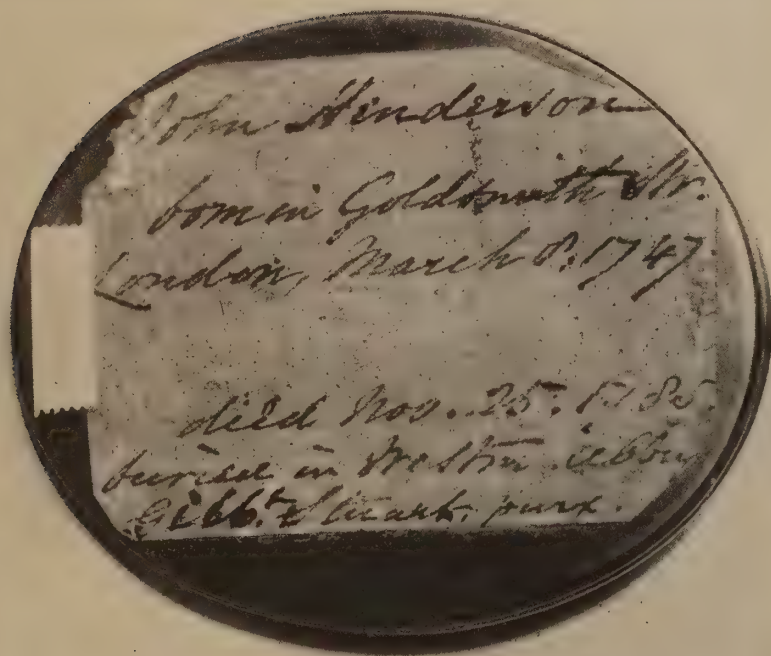 John Henderson
born in Goldsmith Str.
London, March 8. 1747
died Nov. 25. 1785.
buried in Westmr.
Gibbt. Stuart. pinx.